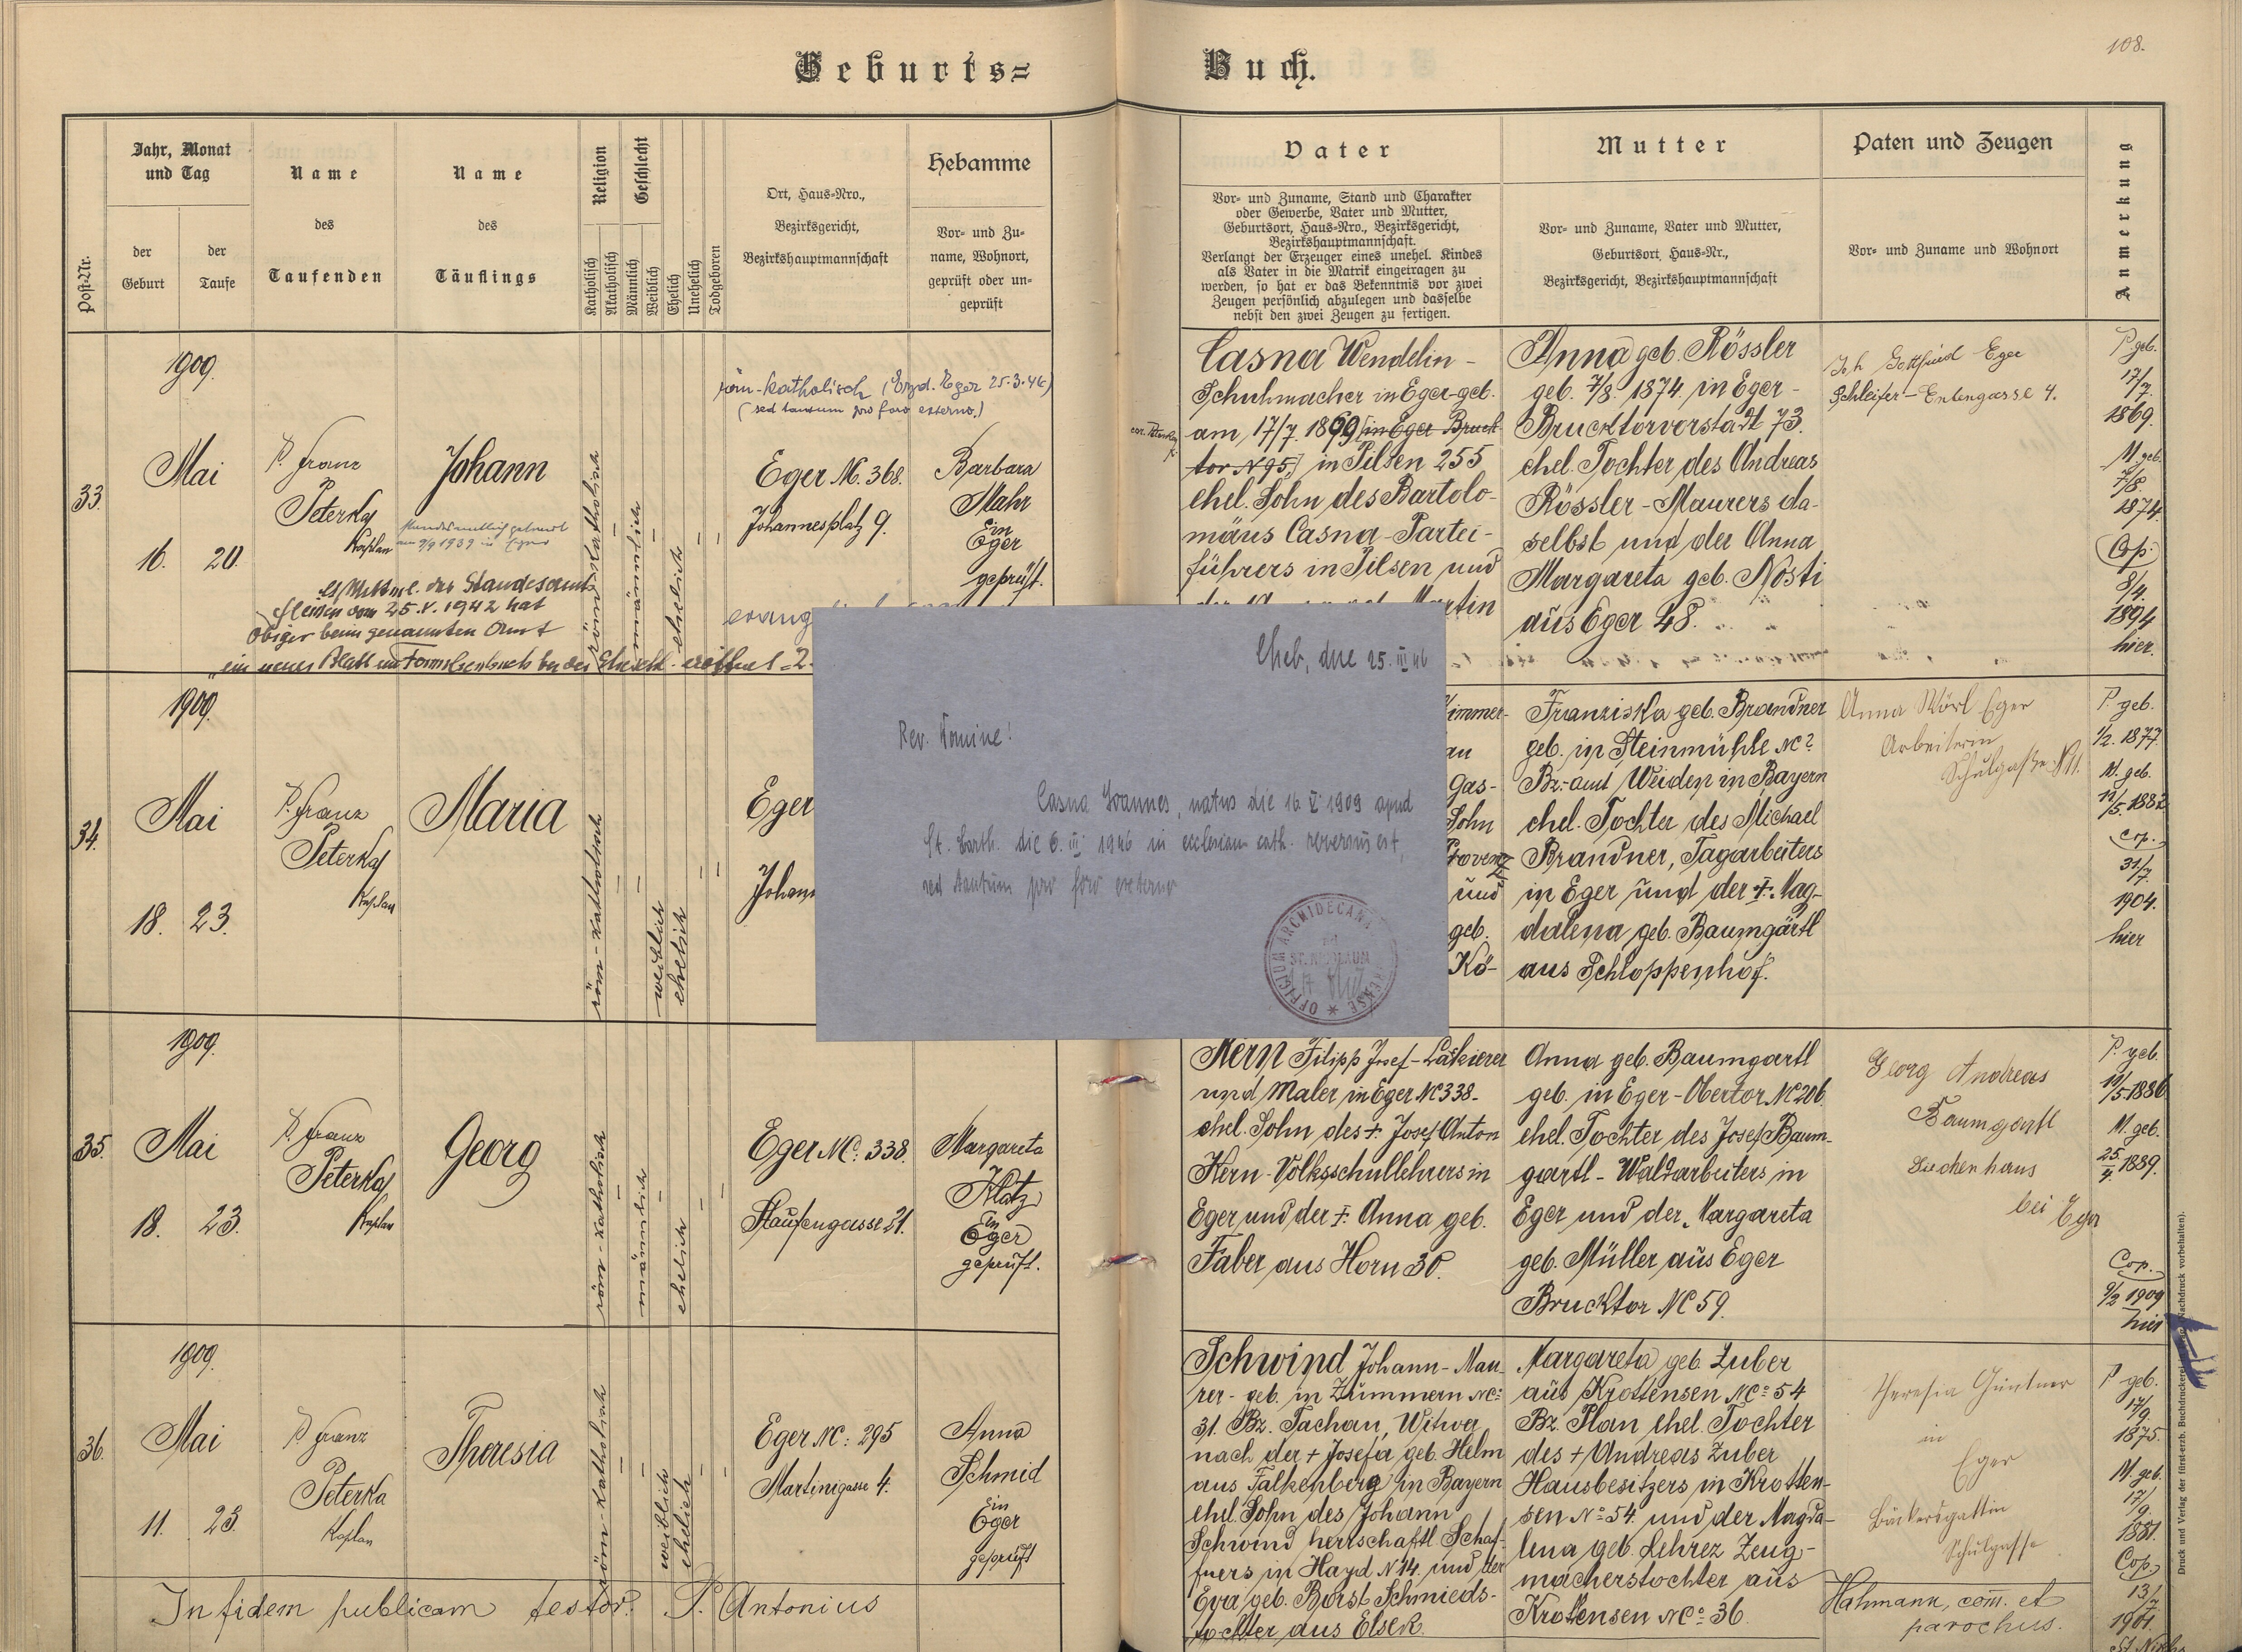 Geburts=
Buch.
108.
Post-Nr.
Jahr, Monat
und Tag
der
Geburt
der
Taufe
Name
des
Taufenden
Name
des
Täuflings
Religion
Katholisch
Akatholisch
Geschlecht
Männlich
Weiblich
Ehelich
Unehelich
Todgeboren
Ort, Haus=Nro.,
Bezirksgericht,
Bezirkshauptmannschaft
Hebamme
Vor= und Zu=
name, Wohnort,
geprüft oder un=
geprüft
Vater
Vor= und Zuname, Stand und Charakter
oder Gewerbe, Vater und Mutter,
Geburtsort, Haus=Nro., Bezirksgericht,
Bezirkshauptmannschaft.
Verlangt der Erzeuger eines unehel. Kindes
als Vater in die Matrik eingetragen zu
werden, so hat er das Bekenntnis vor zwei
Zeugen persönlich abzulegen und dasselbe
nebst den zwei Zeugen zu fertigen.
Mutter
Vor= und Zuname, Vater und Mutter,
Geburtsort, Haus=Nr.,
Bezirksgericht, Bezirkshauptmannschaft
Paten und Zeugen
Vor= und Zuname und Wohnort
Anmerkung
33.
1909.
Mai
16. 20.
P. Franz
Peterka
Kaplan
Johann
standesamtlich getraut
am 9/9 1939 in Eger
des Standesamts
vom 25.V.1942 hat
Obiger beim genannten Amt
ein neues Blatt im Familienbuch
röm-katholisch
männlich
ehelich
röm-katholisch (Erzd. Eger 25.3.46)
(sed tantum pro foro externo.)
Eger NC. 368.
Johannesplatz 9.
evang
Barbara
Mahr
in
Eger
geprüft.
Casna Wendelin -
Schuhmacher in Eger - geb.
am 17/7. 1869 in Eger Bruck-
tor N 95, in Pilsen 255
ehel. Sohn des Bartolo-
mäus Casna - Partei-
führers in Pilsen und
Martin
Anna geb. Rössler
geb. 7/8. 1874 in Eger -
Brucktorvorstadt 73.
ehel. Tochter des Andreas
Rössler - Maurers da-
selbst und der Anna
Margareta geb. Nosti
aus Eger 48.
Joh Gottfried Eger
Schleifer - Entengasse 4.
P. geb.
17/
7.
1869.
M. geb.
7/8.
1874.
Cop.
8/4.
1894
hier.
34.
1909.
Mai
18. 23.
P. Franz
Peterka
Kaplan
Maria
röm-katholisch
weiblich
ehelich
Eger
Johann
Cheb, die 25. III 46
Rev. Domine!
Casna Joannes, natus die 16. V. 1909 apud
St. Barth. die 6. III 1946 in ecclesiam cath. reversus est,
sed tantum pro foro externo
OFFICIUM ARCHIDECANA
Zimmer-
au
Gas-
Sohn
und
geb.
Kö-
Franziska geb. Brandner
geb. in Steinmühle NC?
Bz.-amt Weiden in Bayern
ehel. Tochter des Michael
Brandner, Tagarbeiters
in Eger und der +. Mag-
dalena geb. Baumgärtl
aus Schloppenhof.
Anna Wörl Eger
Arbeiterin
Schulgasse N 11.
P. geb.
1/2. 1877.
M. geb.
11/5. 1882
Cop.
31/
7.
1904.
hier
35.
1909.
Mai
18. 23.
P. Franz
Peterka
Kaplan
Georg
röm-katholisch
männlich
ehelich
Eger NC: 338.
Staufengasse 21.
Margareta
Klatz
in
Eger
geprüft.
Kern Filipp Josef - Lackierer
und Maler in Eger NC 338 -
ehel. Sohn des +. Josef Anton
Kern - Volksschullehrers in
Eger und der +. Anna geb.
Faber aus Horn 30.
Anna geb. Baumgartl
geb. in Eger - Obertor NC 206.
ehel. Tochter des Josef Baum-
gartl - Waldarbeiters in
Eger und der Margareta
geb. Müller aus Eger
Brucktor NC 59.
Georg Andreas
Baumgartl
Siechenhaus
bei Eger
P. geb.
19/5. 1886
M. geb.
25/4. 1889.
Cop.
9/2 1909
hier
36.
1909.
Mai
11. 23.
P. Franz
Peterka
Kaplan
Theresia
röm-katholisch
weiblich
ehelich
Eger NC: 295
Martinigasse 4.
Anna
Schmid
in
Eger
geprüft
Schwind Johann - Mau-
rer - geb. in Zummern NC:
31. Bz. Tachau, Witwer
nach der + Josefa geb. Helm
aus Falkenberg in Bayern
ehel. Sohn des Johann
Schwind herrschaftl. Schaf-
fners in Hayd N 14. und der
Eva geb. Borst Schmieds-
tochter aus Elsch.
Margareta geb. Zuber
aus Krottensen NC: 54
Bz. Plan ehel. Tochter
des + Andreas Zuber
Hausbesitzers in Krotten-
sen No 54. und der Magda-
lena geb. Lehrez Zeug-
macherstochter aus
Krottensen NC: 36.
Theresia Güntner
in
Eger
Bäckersgattin
Schulgasse
P. geb.
17/
9.
1875.
M. geb.
17/
9.
1881.
Cop.
13/
7.
1901.
In fidem publicam testor: P. Antonius
Hahmann, com. et
parochus.
Druck und Verlag der fürst-erzb. Buchdruckerei Nachdruck vorbehalten).